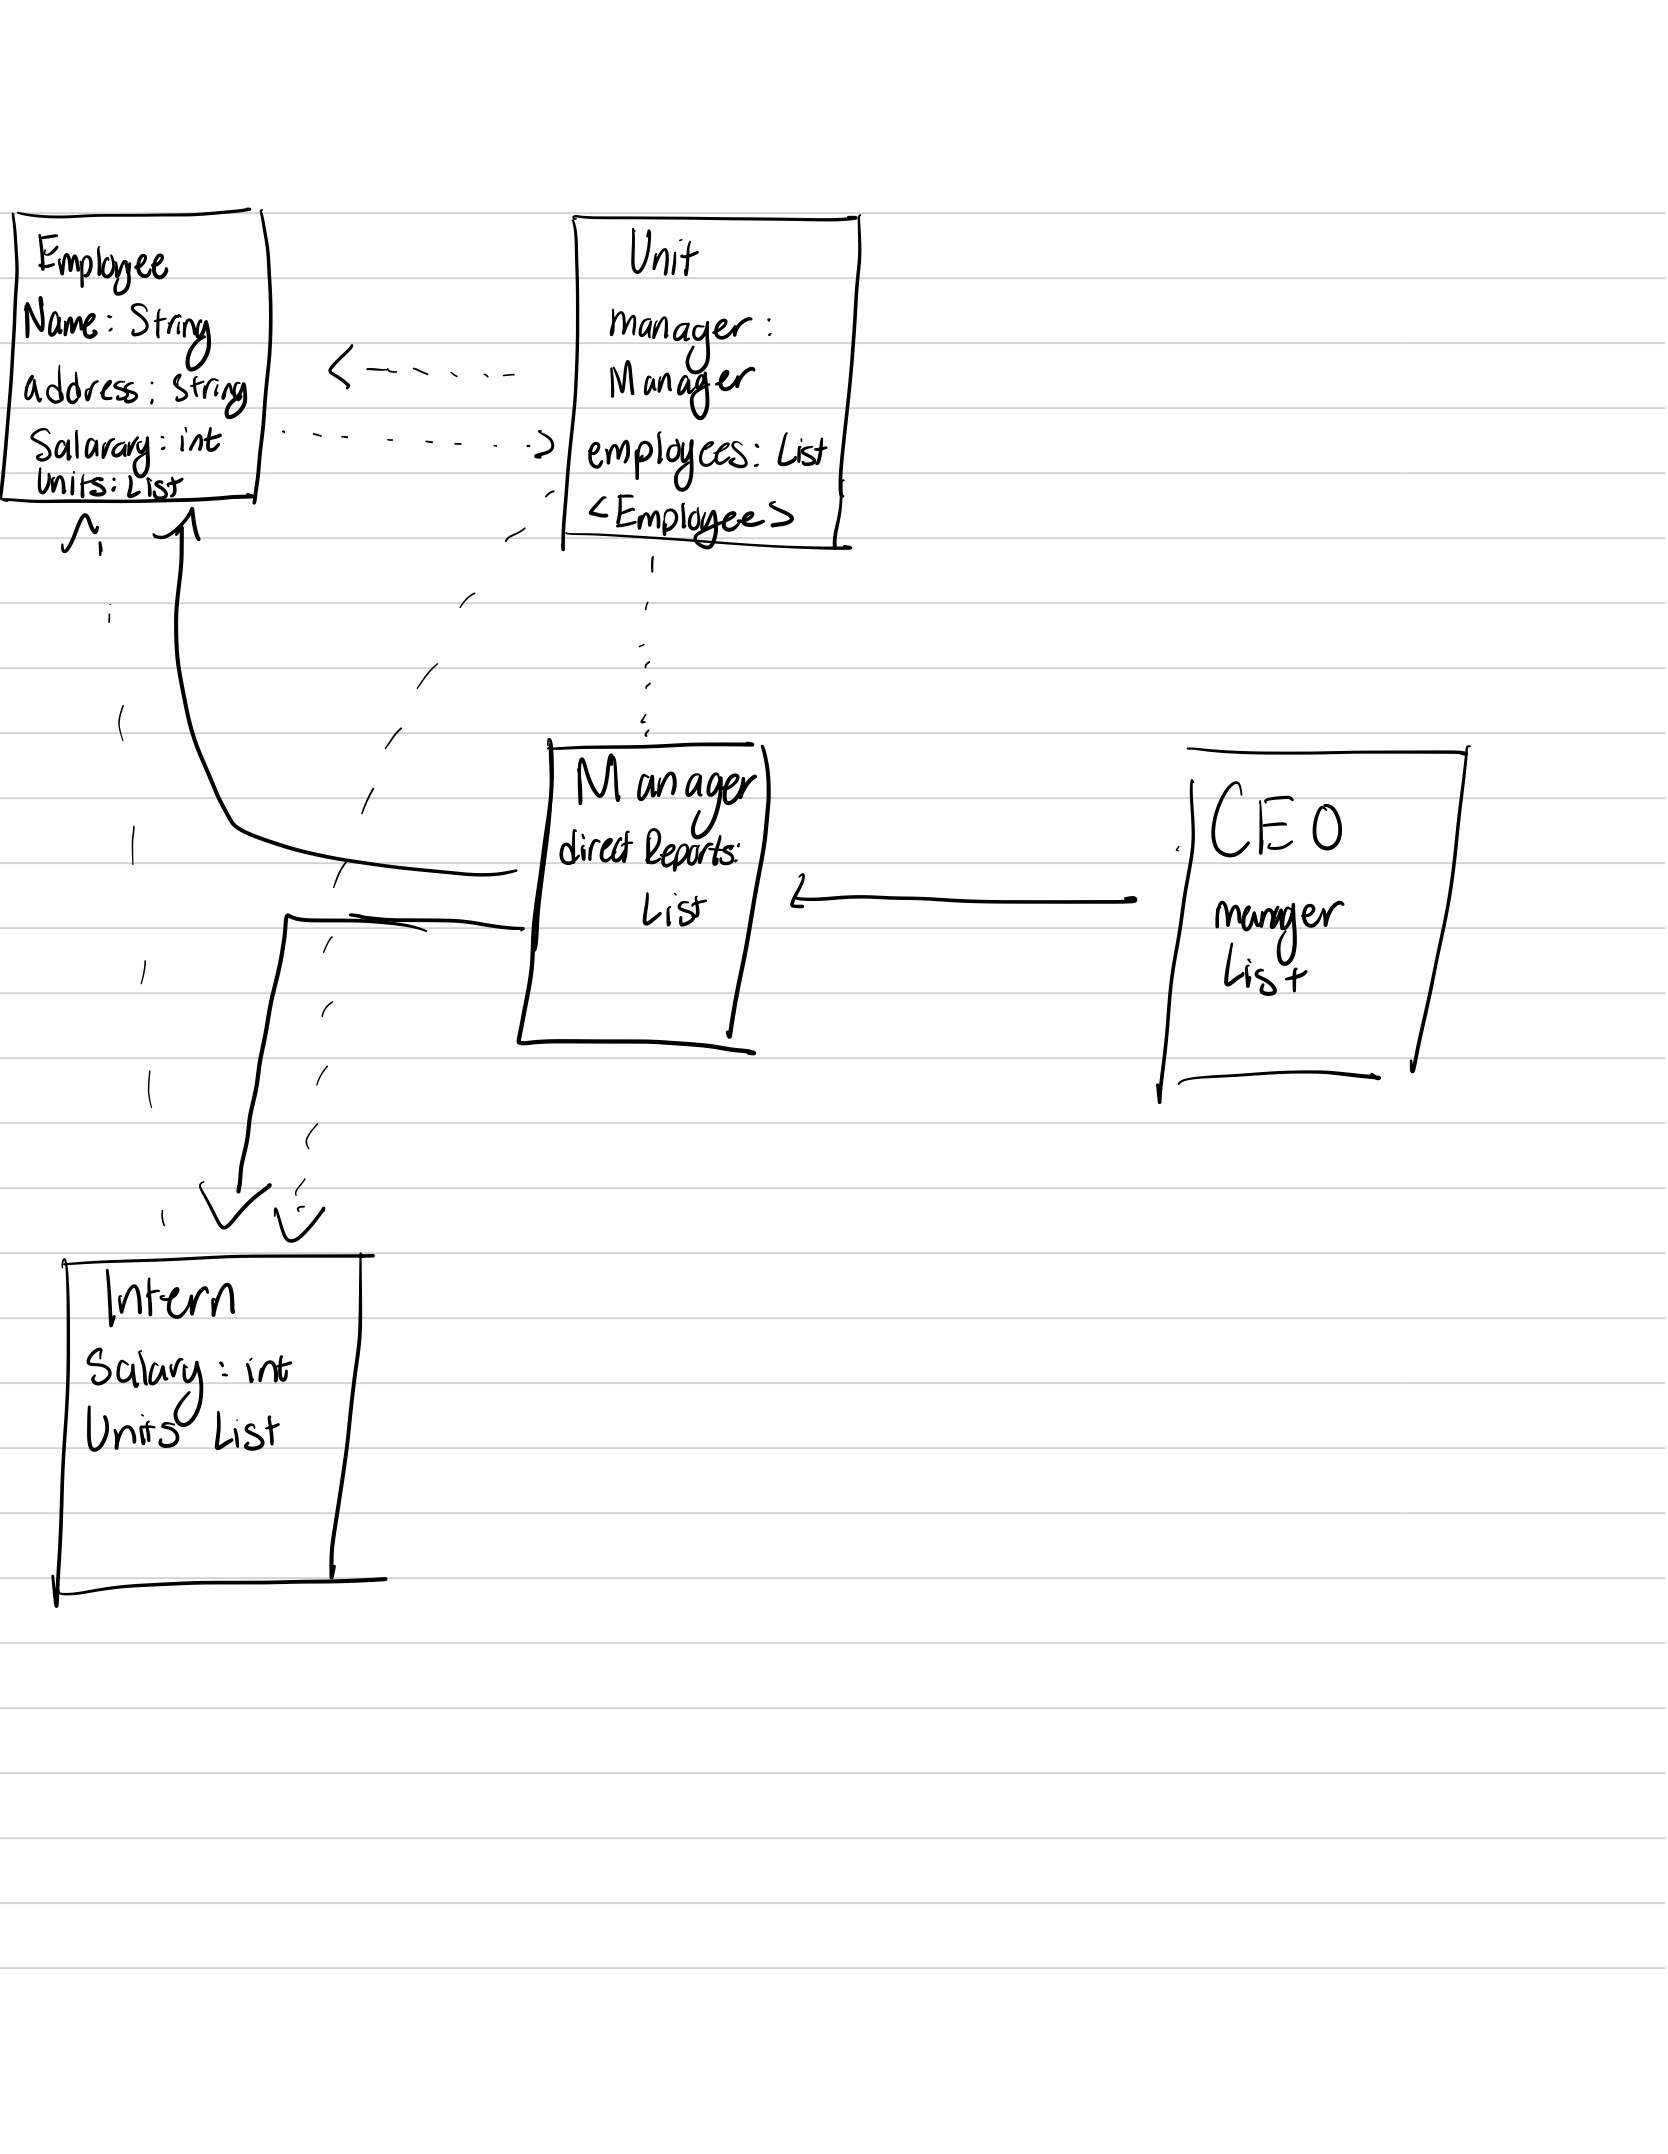 Employee
Name: String
address: String
Salarary: int
Units: List
Unit
manager:
Manager
employees: List
<Employee>
Manager
direct Reports:
List
CEO
manager
List
Intern
Salary: int
Units List